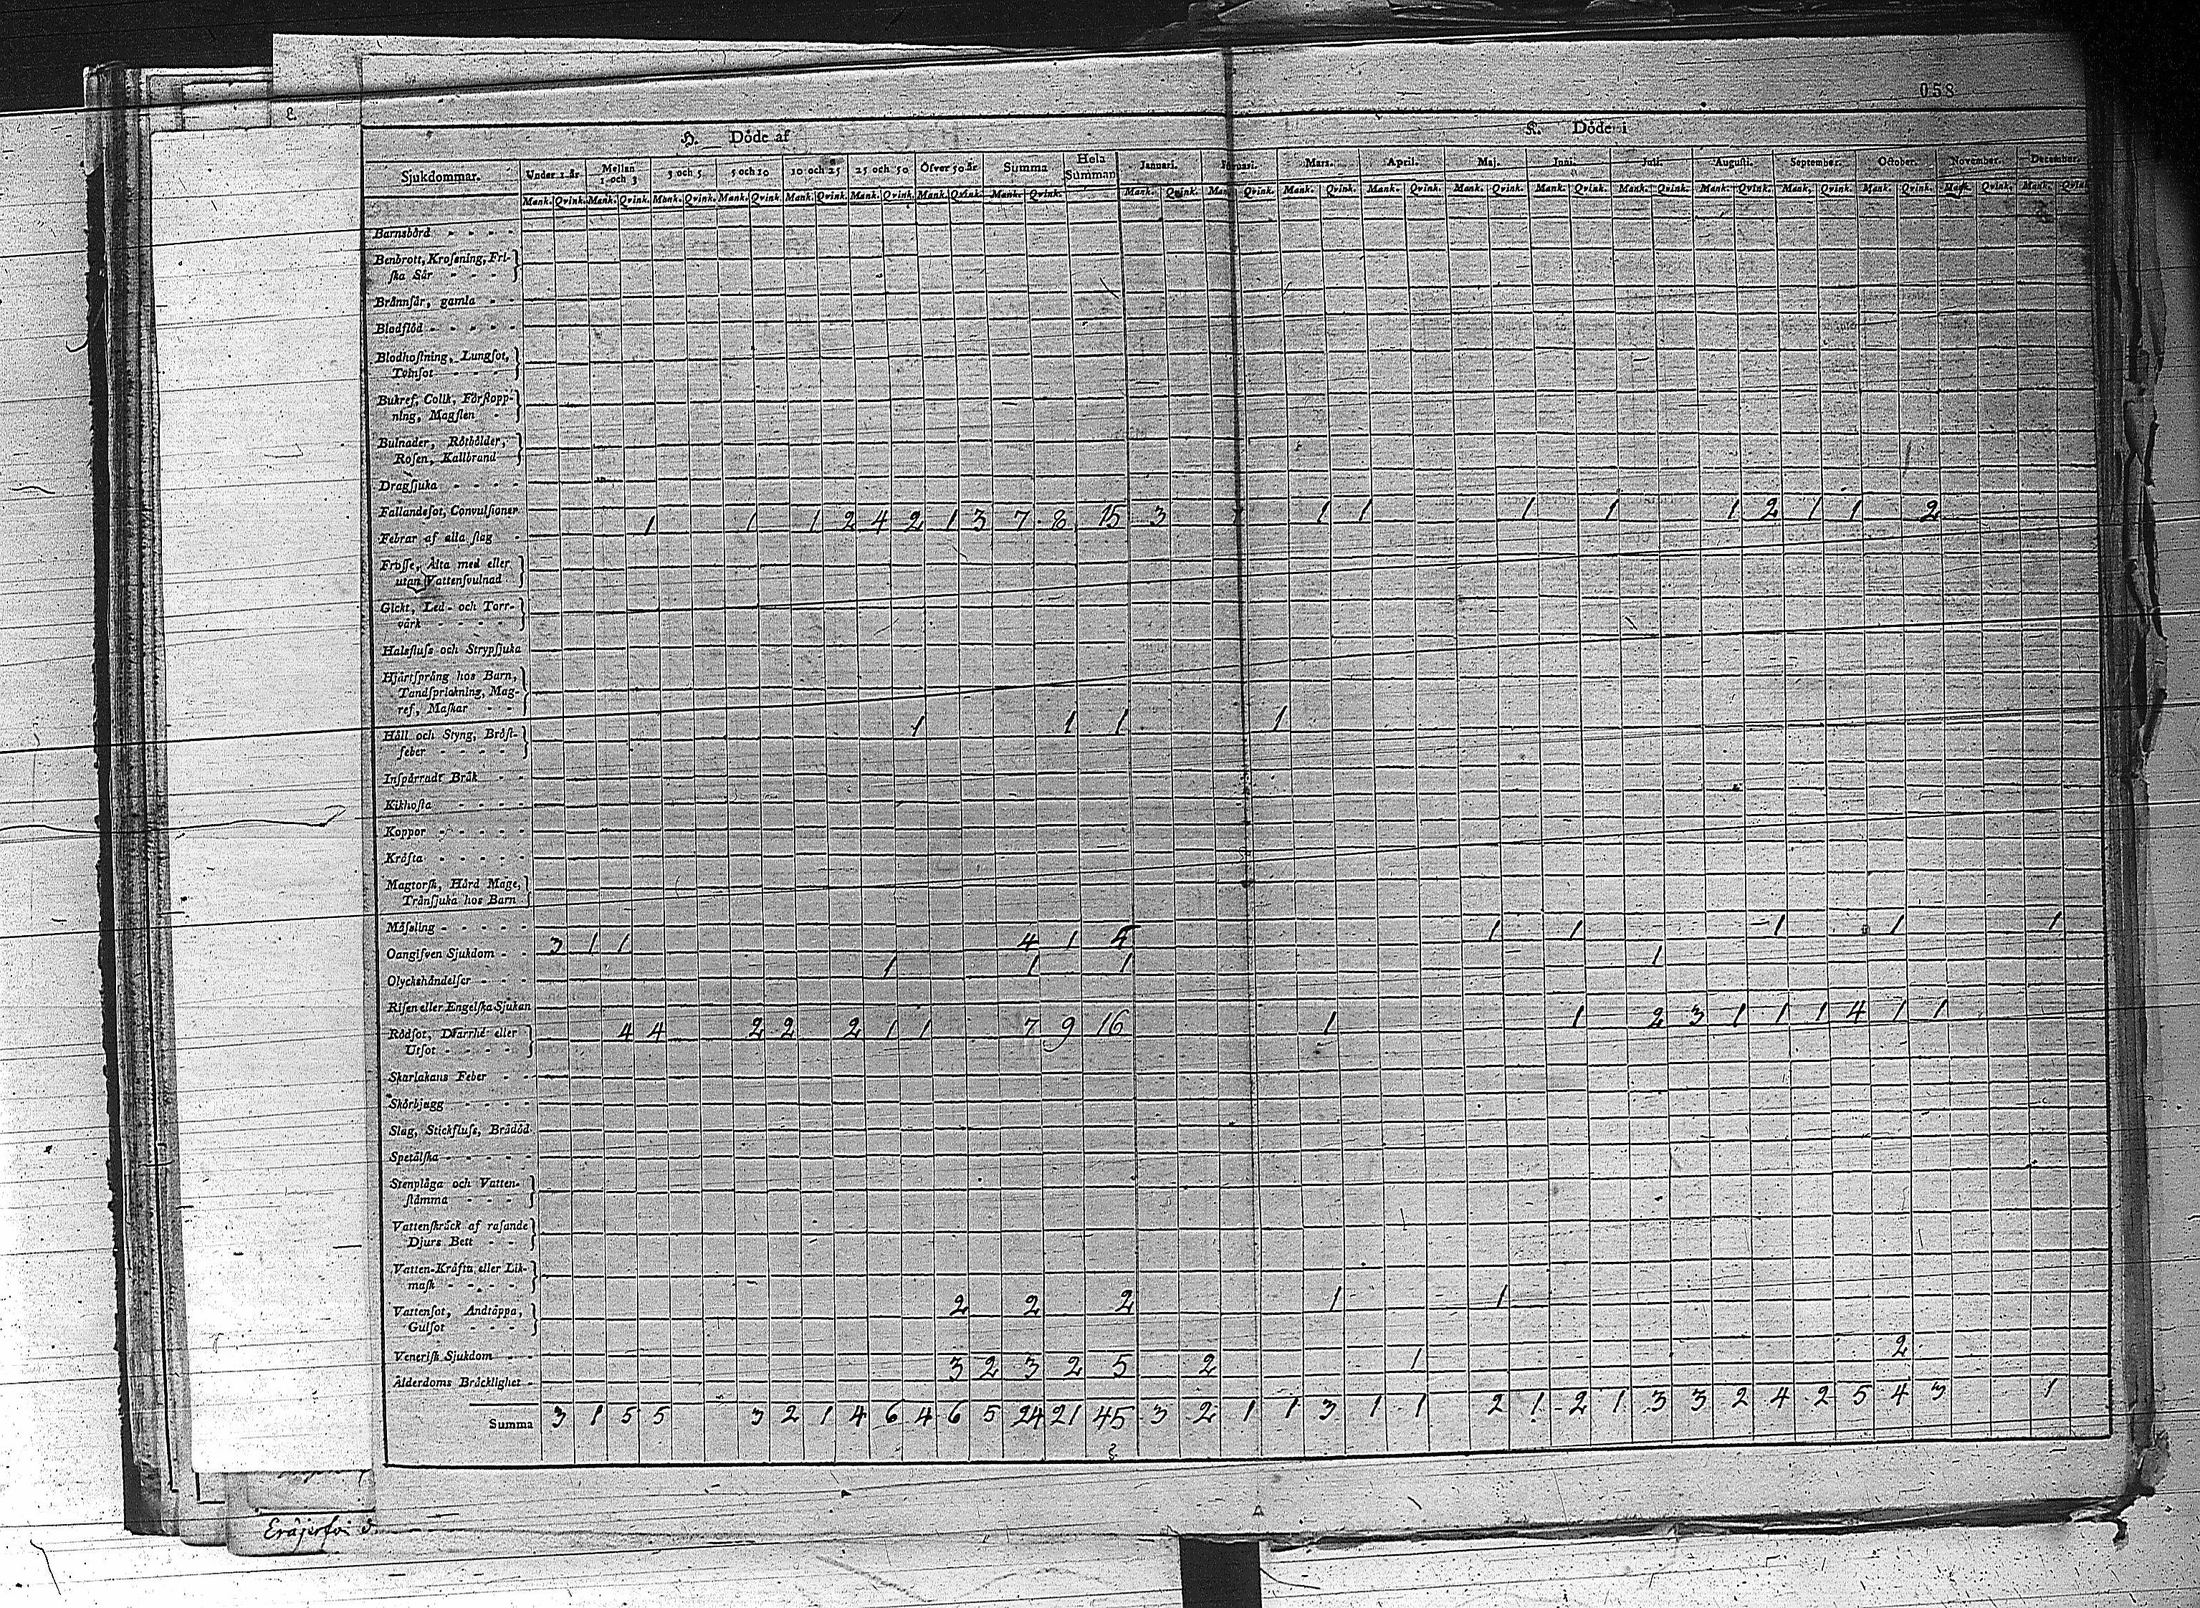 058
H. Döde af
K. Döde i
Sjukdommar. Under 1 år Mellan 1 och 3 3 och 5 5 och 10 10 och 25 25 och 50 Öfver 50 år Summa Hela Summan Januari. Mars. April. Maj. Juni. Juli. Augusti. September. October. November. December.
Mank. Qvink. Mank. Qvink. Mank. Qvink. Mank. Qvink. Mank. Qvink. Mank. Qvink. Mank. Qvink. Mank. Qvink. Mank. Qvink. Mank. Qvink. Mank. Qvink. Mank. Qvink. Mank. Qvink. Mank. Qvink. Mank. Qvink. Mank. Qvink. Mank. Qvink. Mank. Qvink. Mank. Qvink. Mank. Qvink.
Barnsbörd - - - -
Benbrott, Krosning, Fri-
ska Sår - - -
Brännsår, gamla - -
Blodflöd - - - - -
Blodhostning, Lungsot,
Tvinsot - - - -
Bukref, Colik, Förstopp-
ning, Magsten -
Bulnader, Rötbölder,
Rosen, Kallbrand
Dragsjuka - - - -
Fallandesot, Convulsioner
1 1 1 2 4 2 1 3 7 8 15 3 1 1 1 1 1 1 2 1 1 2
Febrar af alla slag -
Frosse, Älta med eller
utan Vattensvulnad
Gickt, Led- och Torr-
värk - - - -
Halsfluss och Strypsjuka
Hjärtsprång hos Barn,
Tandsprickning, Mag-
ref, Maskar - -
1 1 1 1
Håll och Styng, Bröst-
feber - - - -
Inspärradt Bråk - -
Kikhosta - - - -
Koppor - - - - -
Kräfta - - - - -
Magtorsk, Hård Mage,
Trånsjuka hos Barn
Mäsling - - - - -
3 1 1 4 1 5 1 1 1 1 1
Oangifven Sjukdom - -
1 1 1 1
Olyckshändelser - - -
Risen eller Engelska Sjukan
4 4 2 2 2 1 1 7 9 16 1 1 2 3 1 1 1 4 1 1
Rödsot, Diarrhé eller
Utsot - - - -
Skarlakans Feber - -
Skörbjugg - - - -
Slag, Stickfluss, Brådöd
Spetälska - - - - -
Stenplåga och Vatten-
stämma - - -
Vattenskräck af rasande
Djurs Bett - -
Vatten-Kräfta eller Lik-
mask - - - -
2 2 2 1 1
Vattensot, Andtäppa,
Gulsot - - -
Venerisk Sjukdom - -
3 2 3 2 5 2 1 2
Ålderdoms Bräcklighet -
Summa 3 1 5 5 3 2 1 4 6 4 6 5 24 21 45 3 2 1 1 3 1 1 2 1 2 1 3 3 2 4 2 5 4 3 1